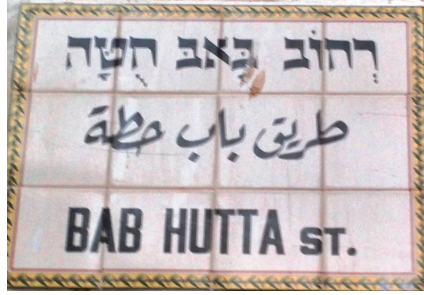 רְחוֹב בָּאבּ חֻטָּה
طريق باب حطة
BAB HUTTA ST.